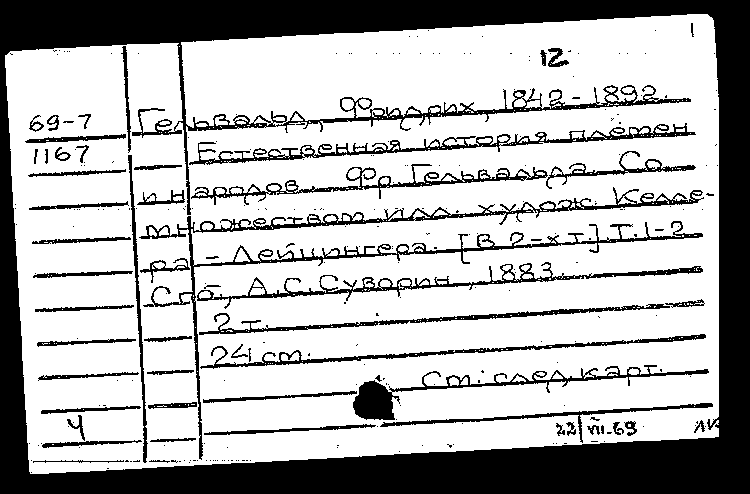 1
12
69-7 Гельвальд, Фридрих, 1842-1892.
1167 Естественная история племен
и народов. Фр. Гельвальда. Со
множеством илл. худож. Келле-
ра - Лейцингера. [В 2-х т.] Т.1-2.
Спб., А.С.Суворин, 1883.
2 т.
24 см.
См. след. карт.
Ч
22/VII-69